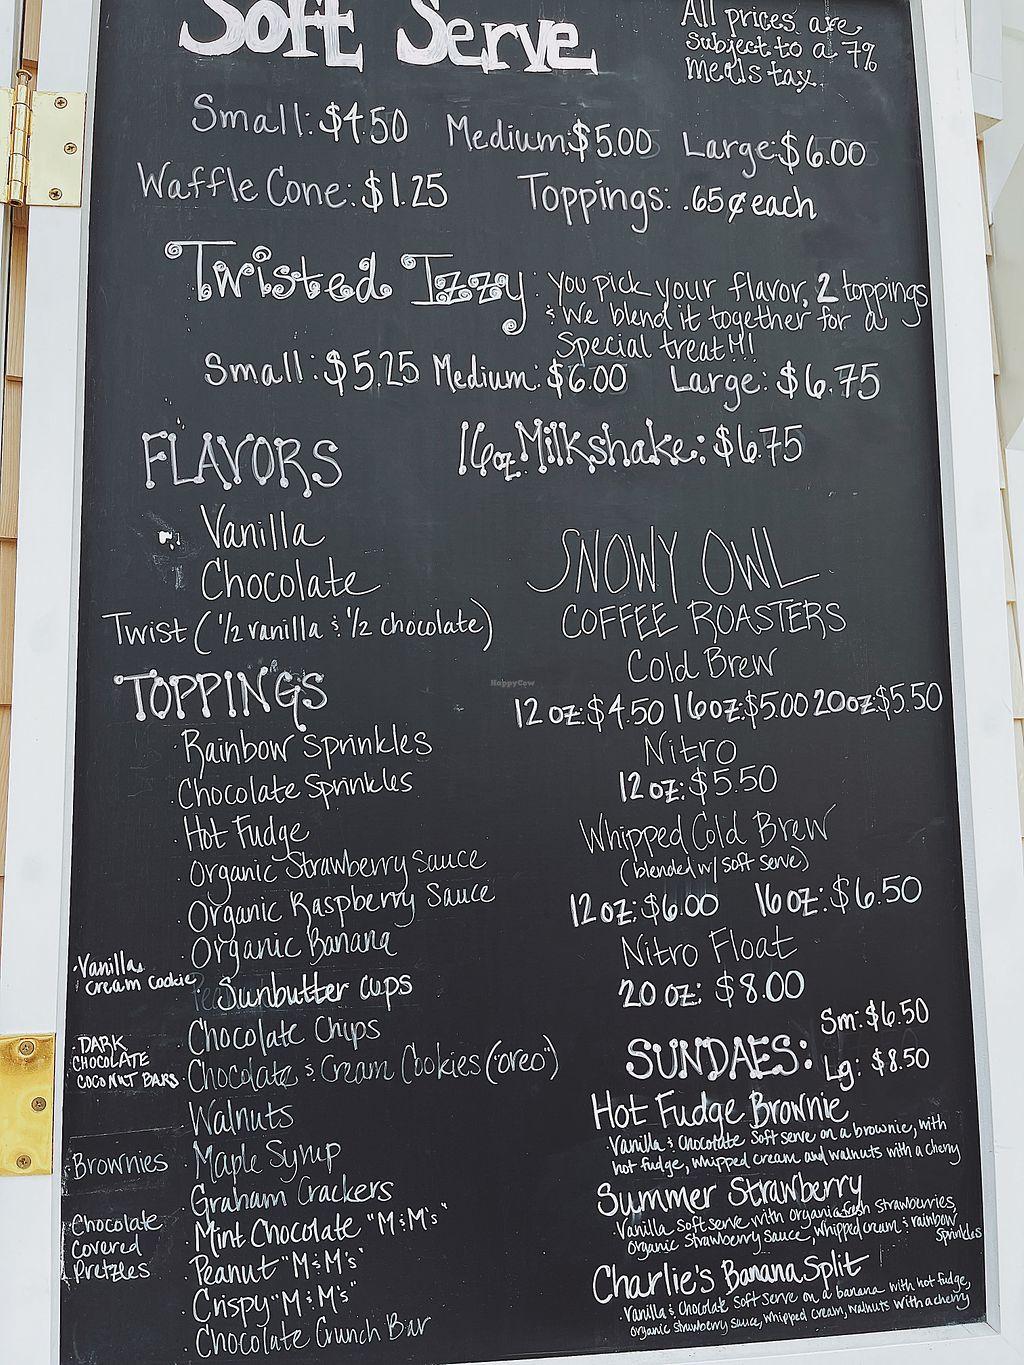 Soft Serve
All prices are
subject to a 7%
meals tax.
Small: $4.50 Medium: $5.00 Large: $6.00
Waffle Cone: $1.25 Toppings: .65¢ each
Twisted Izzy: you pick your flavor, 2 toppings
& we blend it together for a
special treat!!!
Small: $5.25 Medium: $6.00 Large: $6.75
FLAVORS
16oz Milkshake: $6.75
Vanilla
Chocolate
Twist (1/2 vanilla & 1/2 chocolate)
TOPPINGS
· Rainbow Sprinkles
· Chocolate Sprinkles
· Hot Fudge
· Organic Strawberry Sauce
· Organic Raspberry Sauce
· Organic Banana
· Sunbutter cups
· Chocolate Chips
· Chocolate & Cream Cookies ("oreo")
· Walnuts
· Maple Syrup
· Graham Crackers
· Mint Chocolate "M&M's"
· Peanut "M&M's"
· Crispy "M&M's"
· Chocolate Crunch Bar
· Vanilla
cream cookie
· DARK
CHOCOLATE
COCONUT BARS
· Brownies
· Chocolate
Covered
Pretzles
SNOWY OWL
COFFEE ROASTERS
Cold Brew
12 oz: $4.50 16oz: $5.00 20oz: $5.50
Nitro
12 oz: $5.50
Whipped Cold Brew
(blended w/ soft serve)
12oz: $6.00 16oz: $6.50
Nitro Float
20 oz: $8.00
SUNDAES: Sm: $6.50
Lg: $8.50
Hot Fudge Brownie
· Vanilla & Chocolate Soft serve on a brownie, with
hot fudge, whipped cream and walnuts with a cherry
Summer Strawberry
· Vanilla Soft serve with organic fresh strawberries,
organic strawberry sauce, whipped cream & rainbow
sprinkles
Charlie's Banana Split
· Vanilla & Chocolate Soft serve on a banana with hot fudge,
organic strawberry sauce, whipped cream, walnuts with a cherry
HappyCow